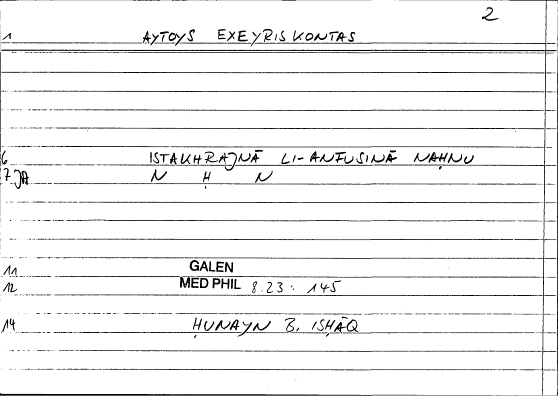 2
1 AYTOYS EXEYRISKONTAS
6 ISTAKHRAJNĀ LI-ANFUSINĀ NAḤNU
7 JA N Ḥ N
11 GALEN
12 MED PHIL 8.23 : 145
14 ḤUNAYN B. ISḤĀQ